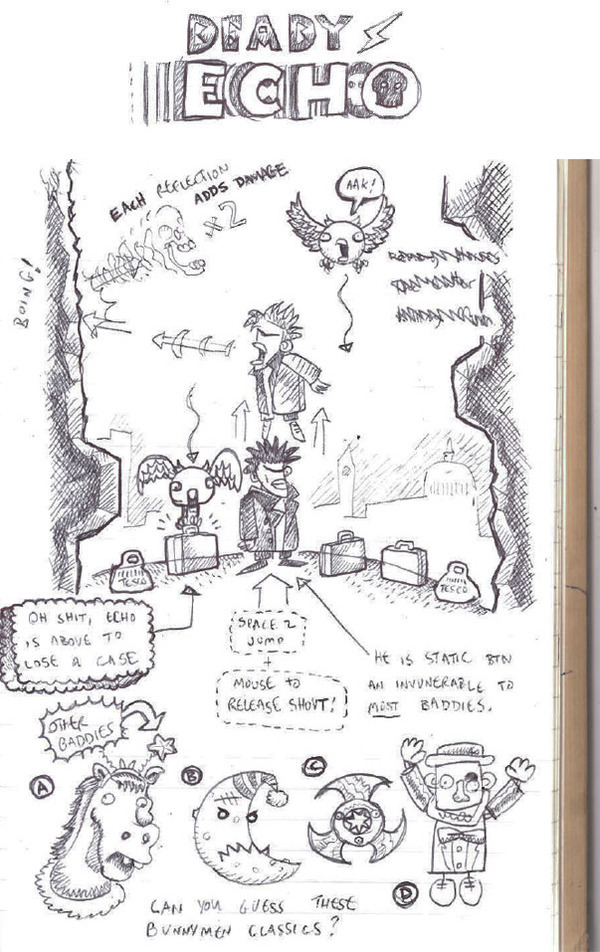 DEADY
ECHO
EACH REFLECTION
ADDS DAMAGE
x2
AAK!
BOING!
TESCO
TESCO
OH SHIT, ECHO
IS ABOVE TO
LOSE A CASE
SPACE 2
JUMP
+
MOUSE TO
RELEASE SHOUT!
HE IS STATIC BTN
AN INVUNERABLE TO
MOST BADDIES.
OTHER
BADDIES
A
B
C
D
CAN YOU GUESS THESE
BUNNYMEN CLASSICS?